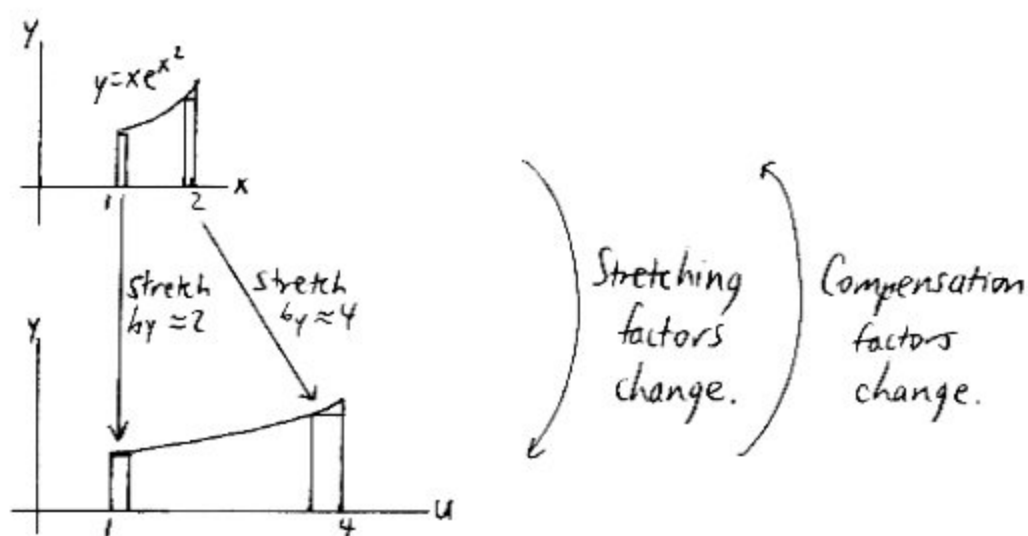 y
y=xe^x²
1
2
x
stretch
by ≈ 2
stretch
by ≈ 4
y
1
4
u
Stretching
factors
change.
Compensation
factors
change.